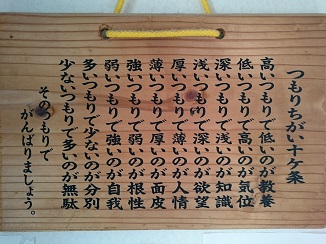 つもりちがい十ヶ条
高いつもりで低いのが教養
低いつもりで高いのが気位
深いつもりで浅いのが知識
浅いつもりで深いのが欲望
厚いつもりで薄いのが人情
薄いつもりで厚いのが面皮
強いつもりで弱いのが根性
弱いつもりで強いのが自我
多いつもりで少ないのが分別
少ないつもりで多いのが無駄
そのつもりで
がんばりましょう。